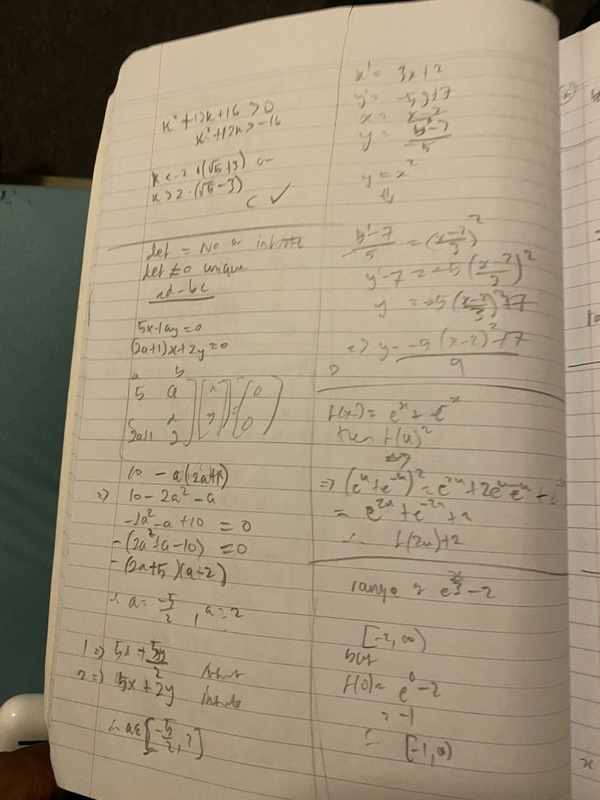 k² + 12k + 16 > 0
k² + 12k > -16
k < -2 + (√5 + 3) or
k > 2 · (√5 - 3)
C ✓
det = No or infinite
det ≠ 0 unique
ad - bc
5x + ay = 0
(2a+1)x + 2y = 0
a b
5 a x 0
y =
2a+1 2 0
10 - a(2a+1)
=> 10 - 2a² - a
-2a² - a + 10 = 0
-(2a² + a - 10) = 0
-(2a+5)(a-2)
∴ a = -5/2, a = 2
1 => 5x + 5y/2
2 => 5x + 2y
∴ a ∈ {-5/2, 2}
x' = 3x + 2
y' = -5y + 7
x = x-2/3
y = y'-7/-5
y = x²
⇓
y'-7/5 = (x-2/3)²
y'-7 = -5(x-2/3)²
y = -5(x-2/3)² + 7
=> y = -5(x-2)² + 7/9
D
f(x) = e^x + e^-x
then f(u)²
=> (e^u + e^-u)² = e^2u + 2e^u e^-u +
= e^2u + e^-2u + 2
∴ f(2u) + 2
range of e^x/3 - 2
[-2, ∞)
but
f(0) = e^0 - 2
= -1
∴ [-1, ∞)